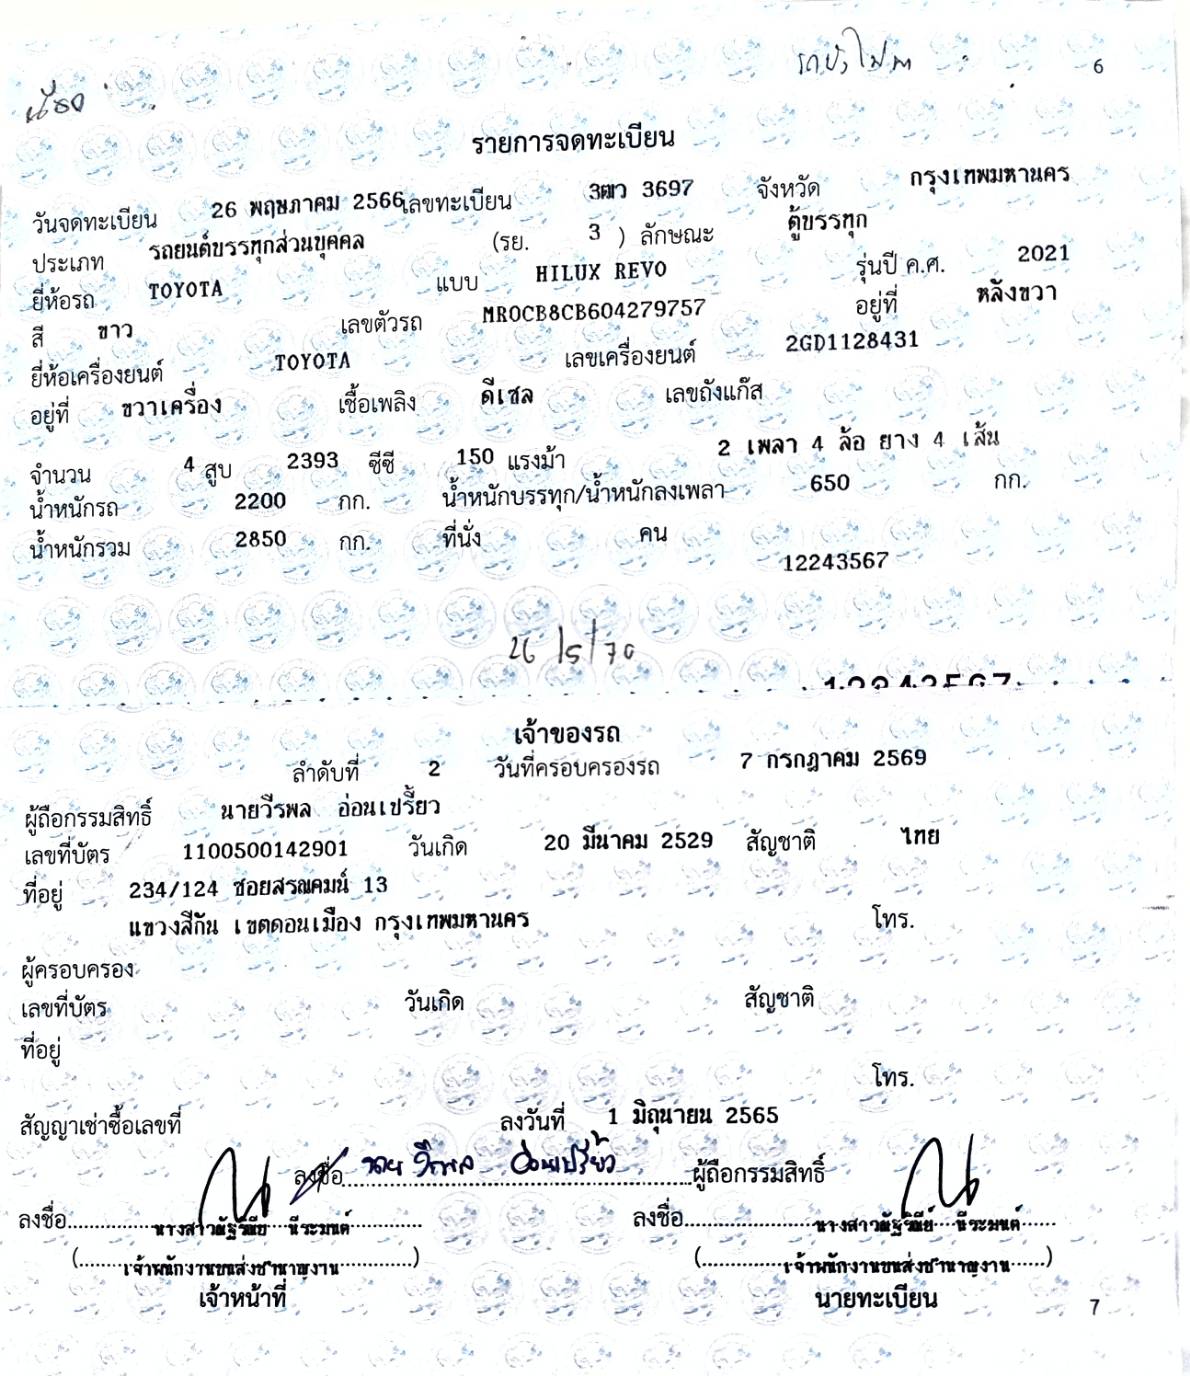 6
รายการจดทะเบียน
วันจดทะเบียน 26 พฤษภาคม 2566 เลขทะเบียน 3ฒว 3697 จังหวัด กรุงเทพมหานคร
ประเภท รถยนต์บรรทุกส่วนบุคคล (รย. 3 ) ลักษณะ ตู้บรรทุก
ยี่ห้อรถ TOYOTA แบบ HILUX REVO รุ่นปี ค.ศ. 2021
สี ขาว เลขตัวรถ MR0CB8CB604279757 อยู่ที่ หลังขวา
ยี่ห้อเครื่องยนต์ TOYOTA เลขเครื่องยนต์ 2GD1128431
อยู่ที่ ขวาเครื่อง เชื้อเพลิง ดีเซล เลขถังแก๊ส
จำนวน 4 สูบ 2393 ซีซี 150 แรงม้า 2 เพลา 4 ล้อ ยาง 4 เส้น
น้ำหนักรถ 2200 กก. น้ำหนักบรรทุก/น้ำหนักลงเพลา 650 กก.
น้ำหนักรวม 2850 กก. ที่นั่ง คน
12243567
26/5/70
12243567
เจ้าของรถ
ลำดับที่ 2 วันที่ครอบครองรถ 7 กรกฎาคม 2569
ผู้ถือกรรมสิทธิ์ นายวีรพล อ่อนเปรี้ยว
เลขที่บัตร 1100500142901 วันเกิด 20 มีนาคม 2529 สัญชาติ ไทย
ที่อยู่ 234/124 ซอยสรณคมน์ 13
แขวงสีกัน เขตดอนเมือง กรุงเทพมหานคร โทร.
ผู้ครอบครอง
เลขที่บัตร วันเกิด สัญชาติ
ที่อยู่
โทร.
สัญญาเช่าซื้อเลขที่ ลงวันที่ 1 มิถุนายน 2565
ลงชื่อ นาย วีรพล อ่อนเปรี้ยว ผู้ถือกรรมสิทธิ์
ลงชื่อ นางสาวณัฐริณีย์ นีระมนต์ ลงชื่อ นางสาวณัฐริณีย์ นีระมนต์
(เจ้าพนักงานขนส่งชำนาญงาน) (เจ้าพนักงานขนส่งชำนาญงาน)
เจ้าหน้าที่ นายทะเบียน
7